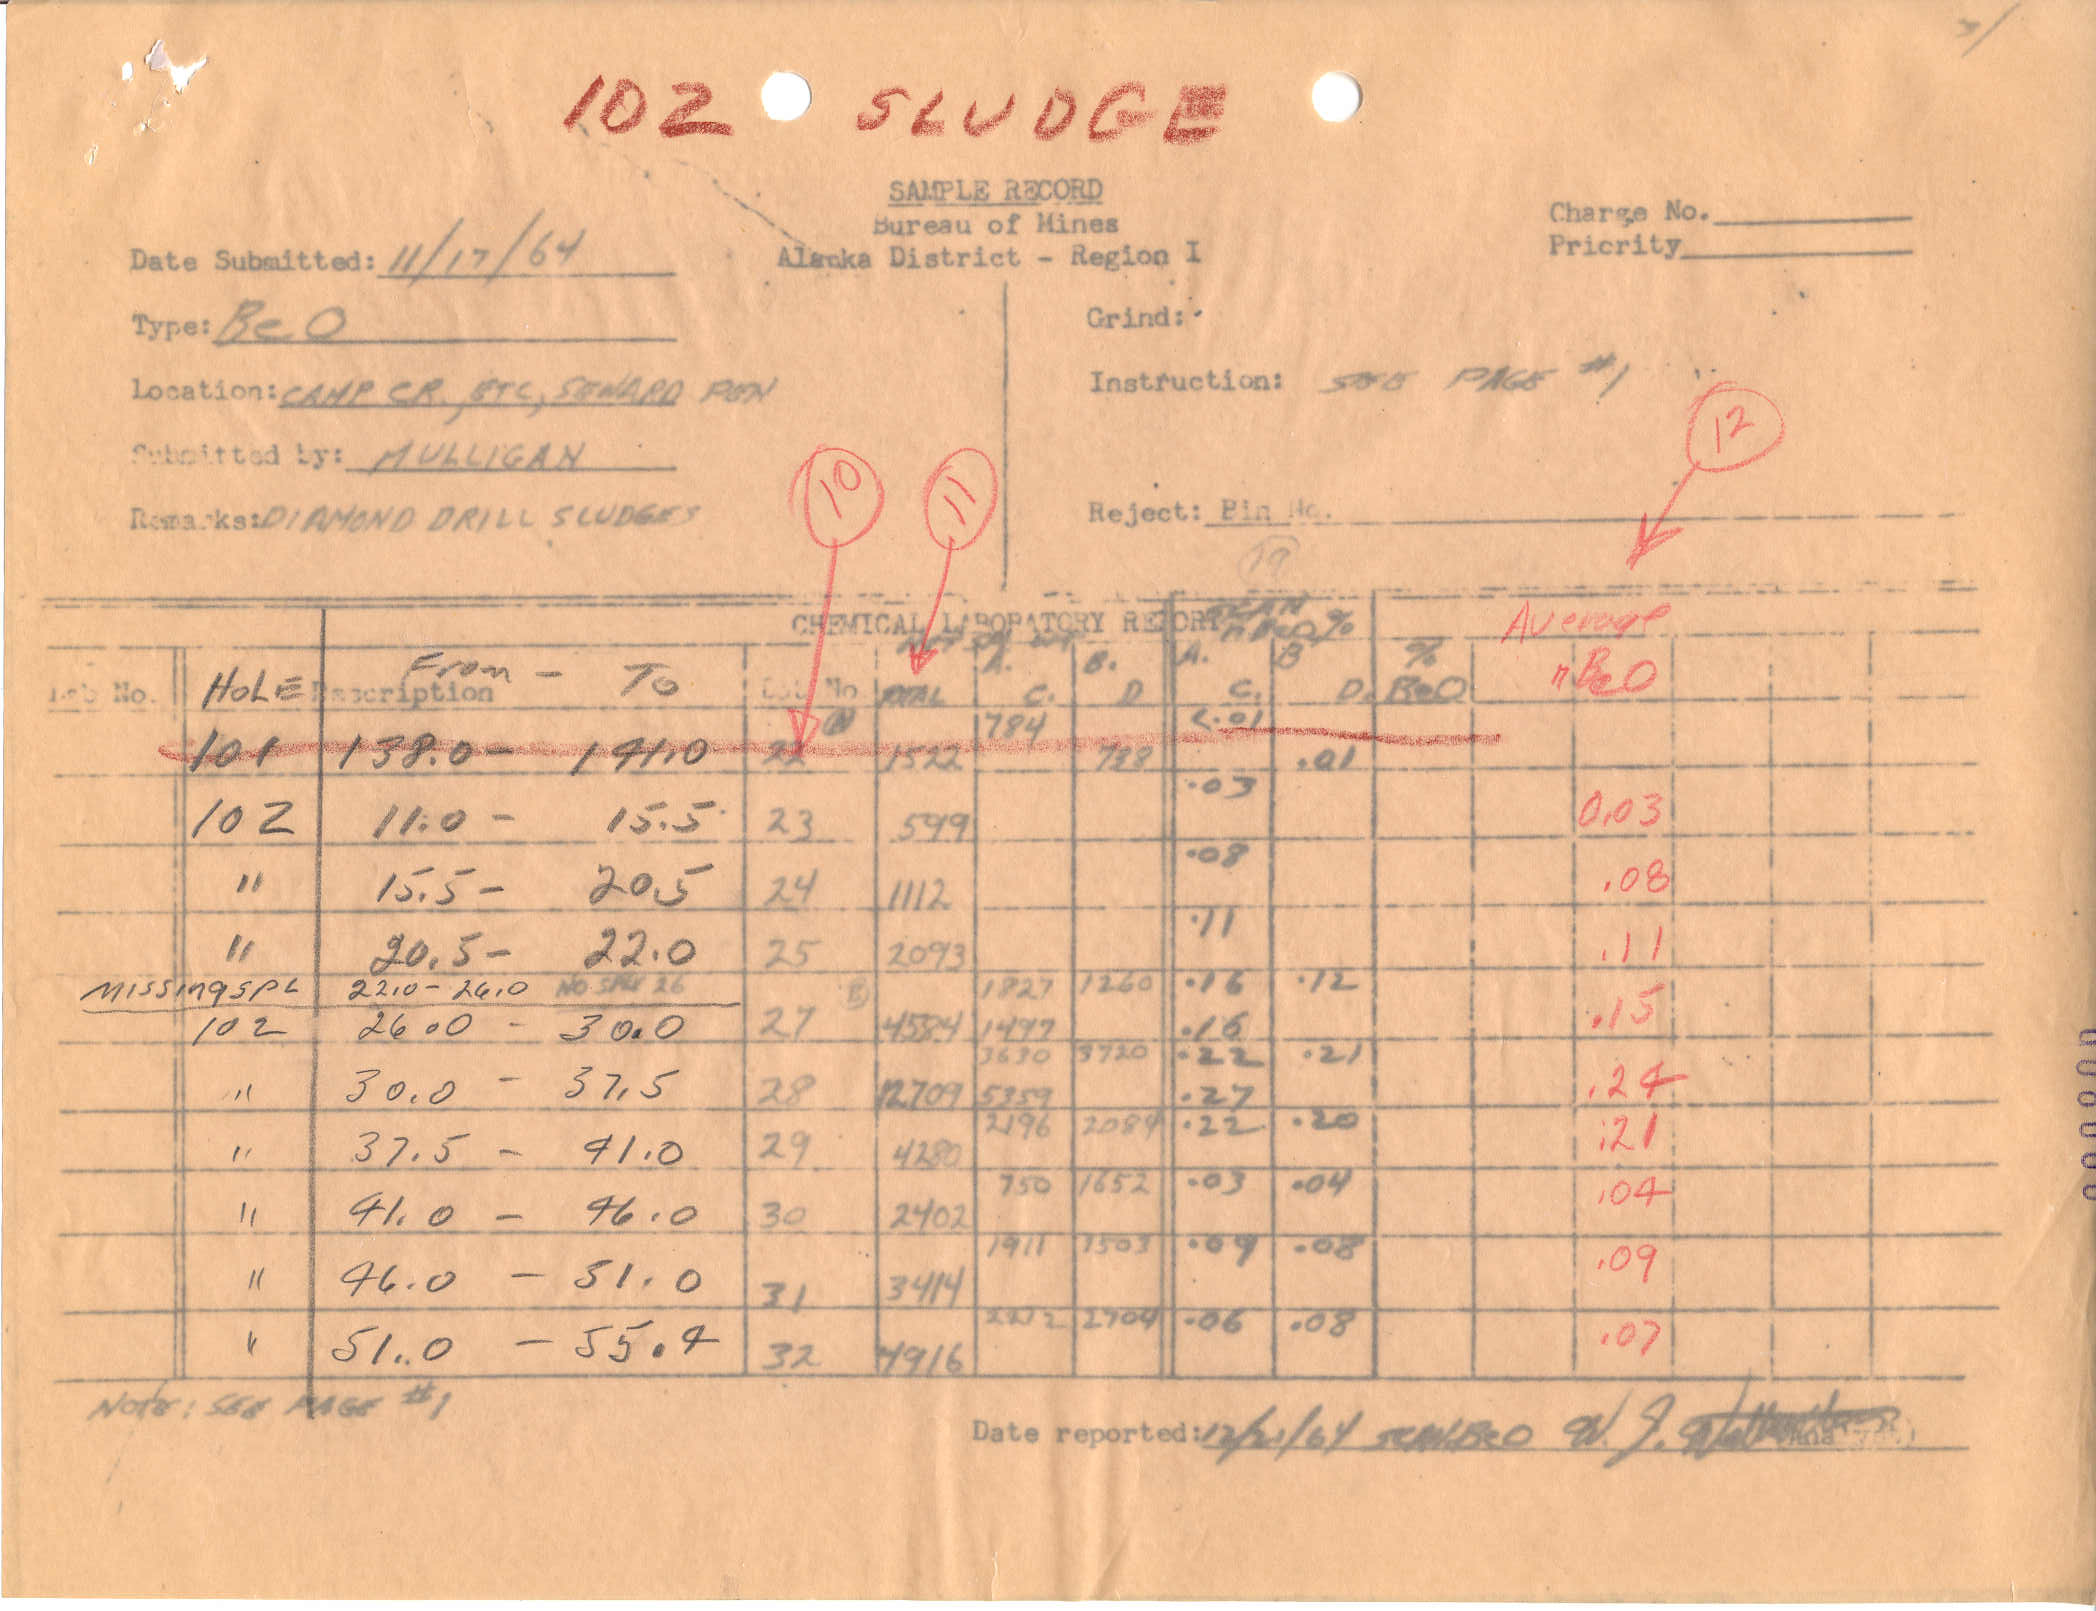 102 SLUDGE
SAMPLE RECORD
Bureau of Mines
Alaska District - Region I
Charge No.
Priority
Date Submitted: 11/17/64
Type: BeO
Grind:
Location: CAMP CR., ETC, SEWARD PEN
Instruction: SEE PAGE #1
Submitted by: MULLIGAN
Remarks: DIAMOND DRILL SLUDGES
Reject: Bin No.
10 11 12
19
CHEMICAL LABORATORY REPORT
SCAN
n BeO %
Average
n BeO
A. B. A. B %
Lab No. HOLE Description From - To No. TOTAL C. D C. D. BeO
784 <.01
101 138.0 - 141.0 22 1522 738 .01
.03
102 11.0 - 15.5 23 599 0.03
.08
" 15.5 - 20.5 24 1112 .08
.11
" 20.5 - 22.0 25 2093 .11
MISSING SPL 22.0 - 26.0 NO SPLE 26 1827 1260 .16 .12
102 26.0 - 30.0 27 4584 1497 .16 .15
3630 3720 .22 .21
" 30.0 - 37.5 28 12709 5359 .27 .24
2196 2084 .22 .20
" 37.5 - 41.0 29 4280 .21
750 1652 .03 .04
" 41.0 - 46.0 30 2402 .04
1911 1503 .09 .08
" 46.0 - 51.0 31 3414 .09
2212 2704 .06 .08
" 51.0 - 55.4 32 4916 .07
NOTE: SEE PAGE #1
Date reported: 12/21/64 SCAN BeO W. J.